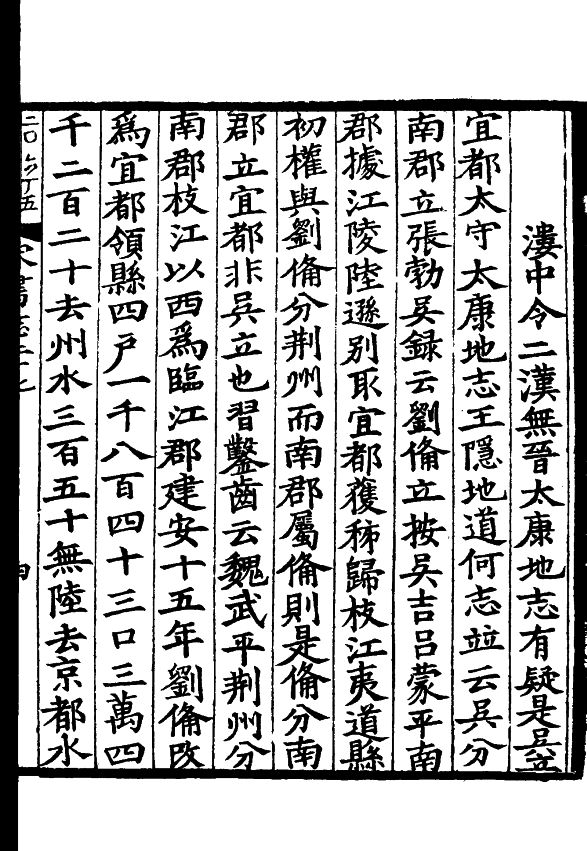 漊中令二漢無晉太康地志有疑是吳立
宜都太守太康地志王隱地道何志並云吳分
南郡立張勃吳録云劉備立按吳吉呂蒙平南
郡據江陵陸遜别取宜都獲秭歸枝江夷道縣
初權與劉備分荆州而南郡屬備則是備分南
郡立宜都非吳立也習鑿齒云魏武平荆州分
南郡枝江以西爲臨江郡建安十五年劉備改
爲宜都領縣四户一千八百四十三口三萬四
千二百二十去州水三百五十無陸去京都水